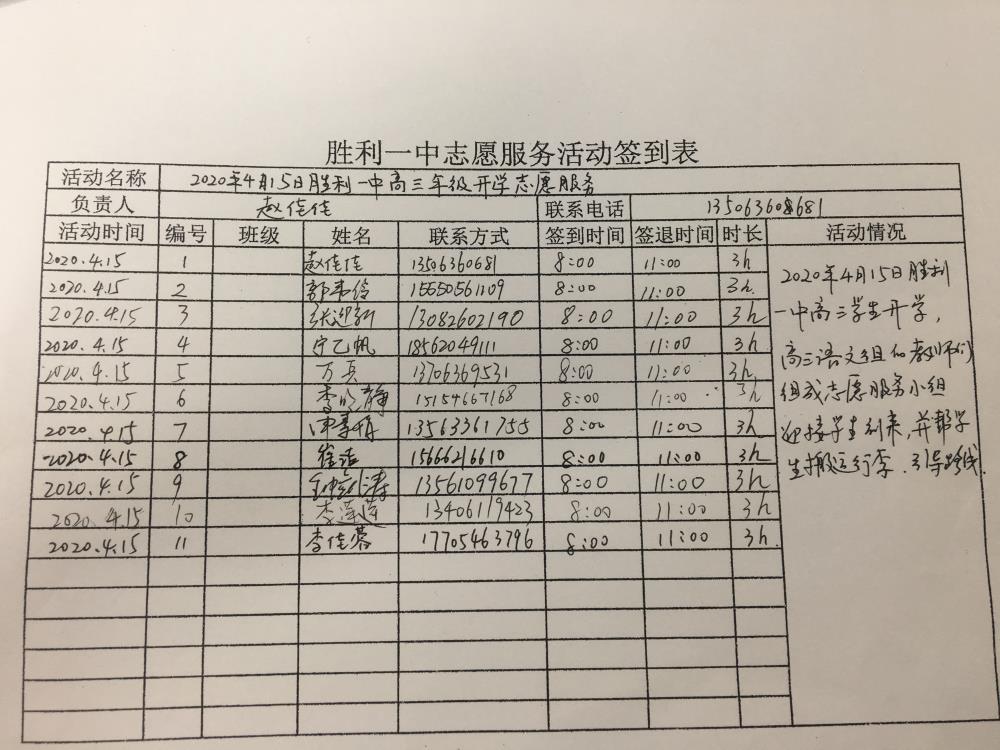 胜利一中志愿服务活动签到表
活动名称 2020年4月15日胜利一中高三年级开学志愿服务
负责人 赵佳佳 联系电话 135063608681
活动时间 编号 班级 姓名 联系方式 签到时间 签退时间 时长 活动情况
2020.4.15 1 赵佳佳 13506360681 8:00 11:00 3h
2020.4.15 2 郭韦伶 15550561109 8:00 11:00 3h.
2020.4.15 3 张迎新 13082602190 8:00 11:00 3h
2020.4.15 4 宁乙帆 18562049111 8:00 11:00 3h
2020.4.15 5 万兵 13706369531 8:00 11:00 3h.
2020.4.15 6 李晓静 15154667168 8:00 11:00 3h
2020.4.15 7 13563361755 8:00 11:00 3h
2020.4.15 8 徐洁 15666216610 8:00 11:00 3h
2020.4.15 9 13561099677 8:00 11:00 3h
2020.4.15 10 李莲莲 13406119423 8:00 11:00 3h
2020.4.15 11 李佳蓉 17705463796 8:00 11:00 3h.
2020年4月15日胜利
一中高三学生开学，
高三语文组的教师们
组成志愿服务小组
迎接学生到来，并帮学
生搬运行李、引导路线.